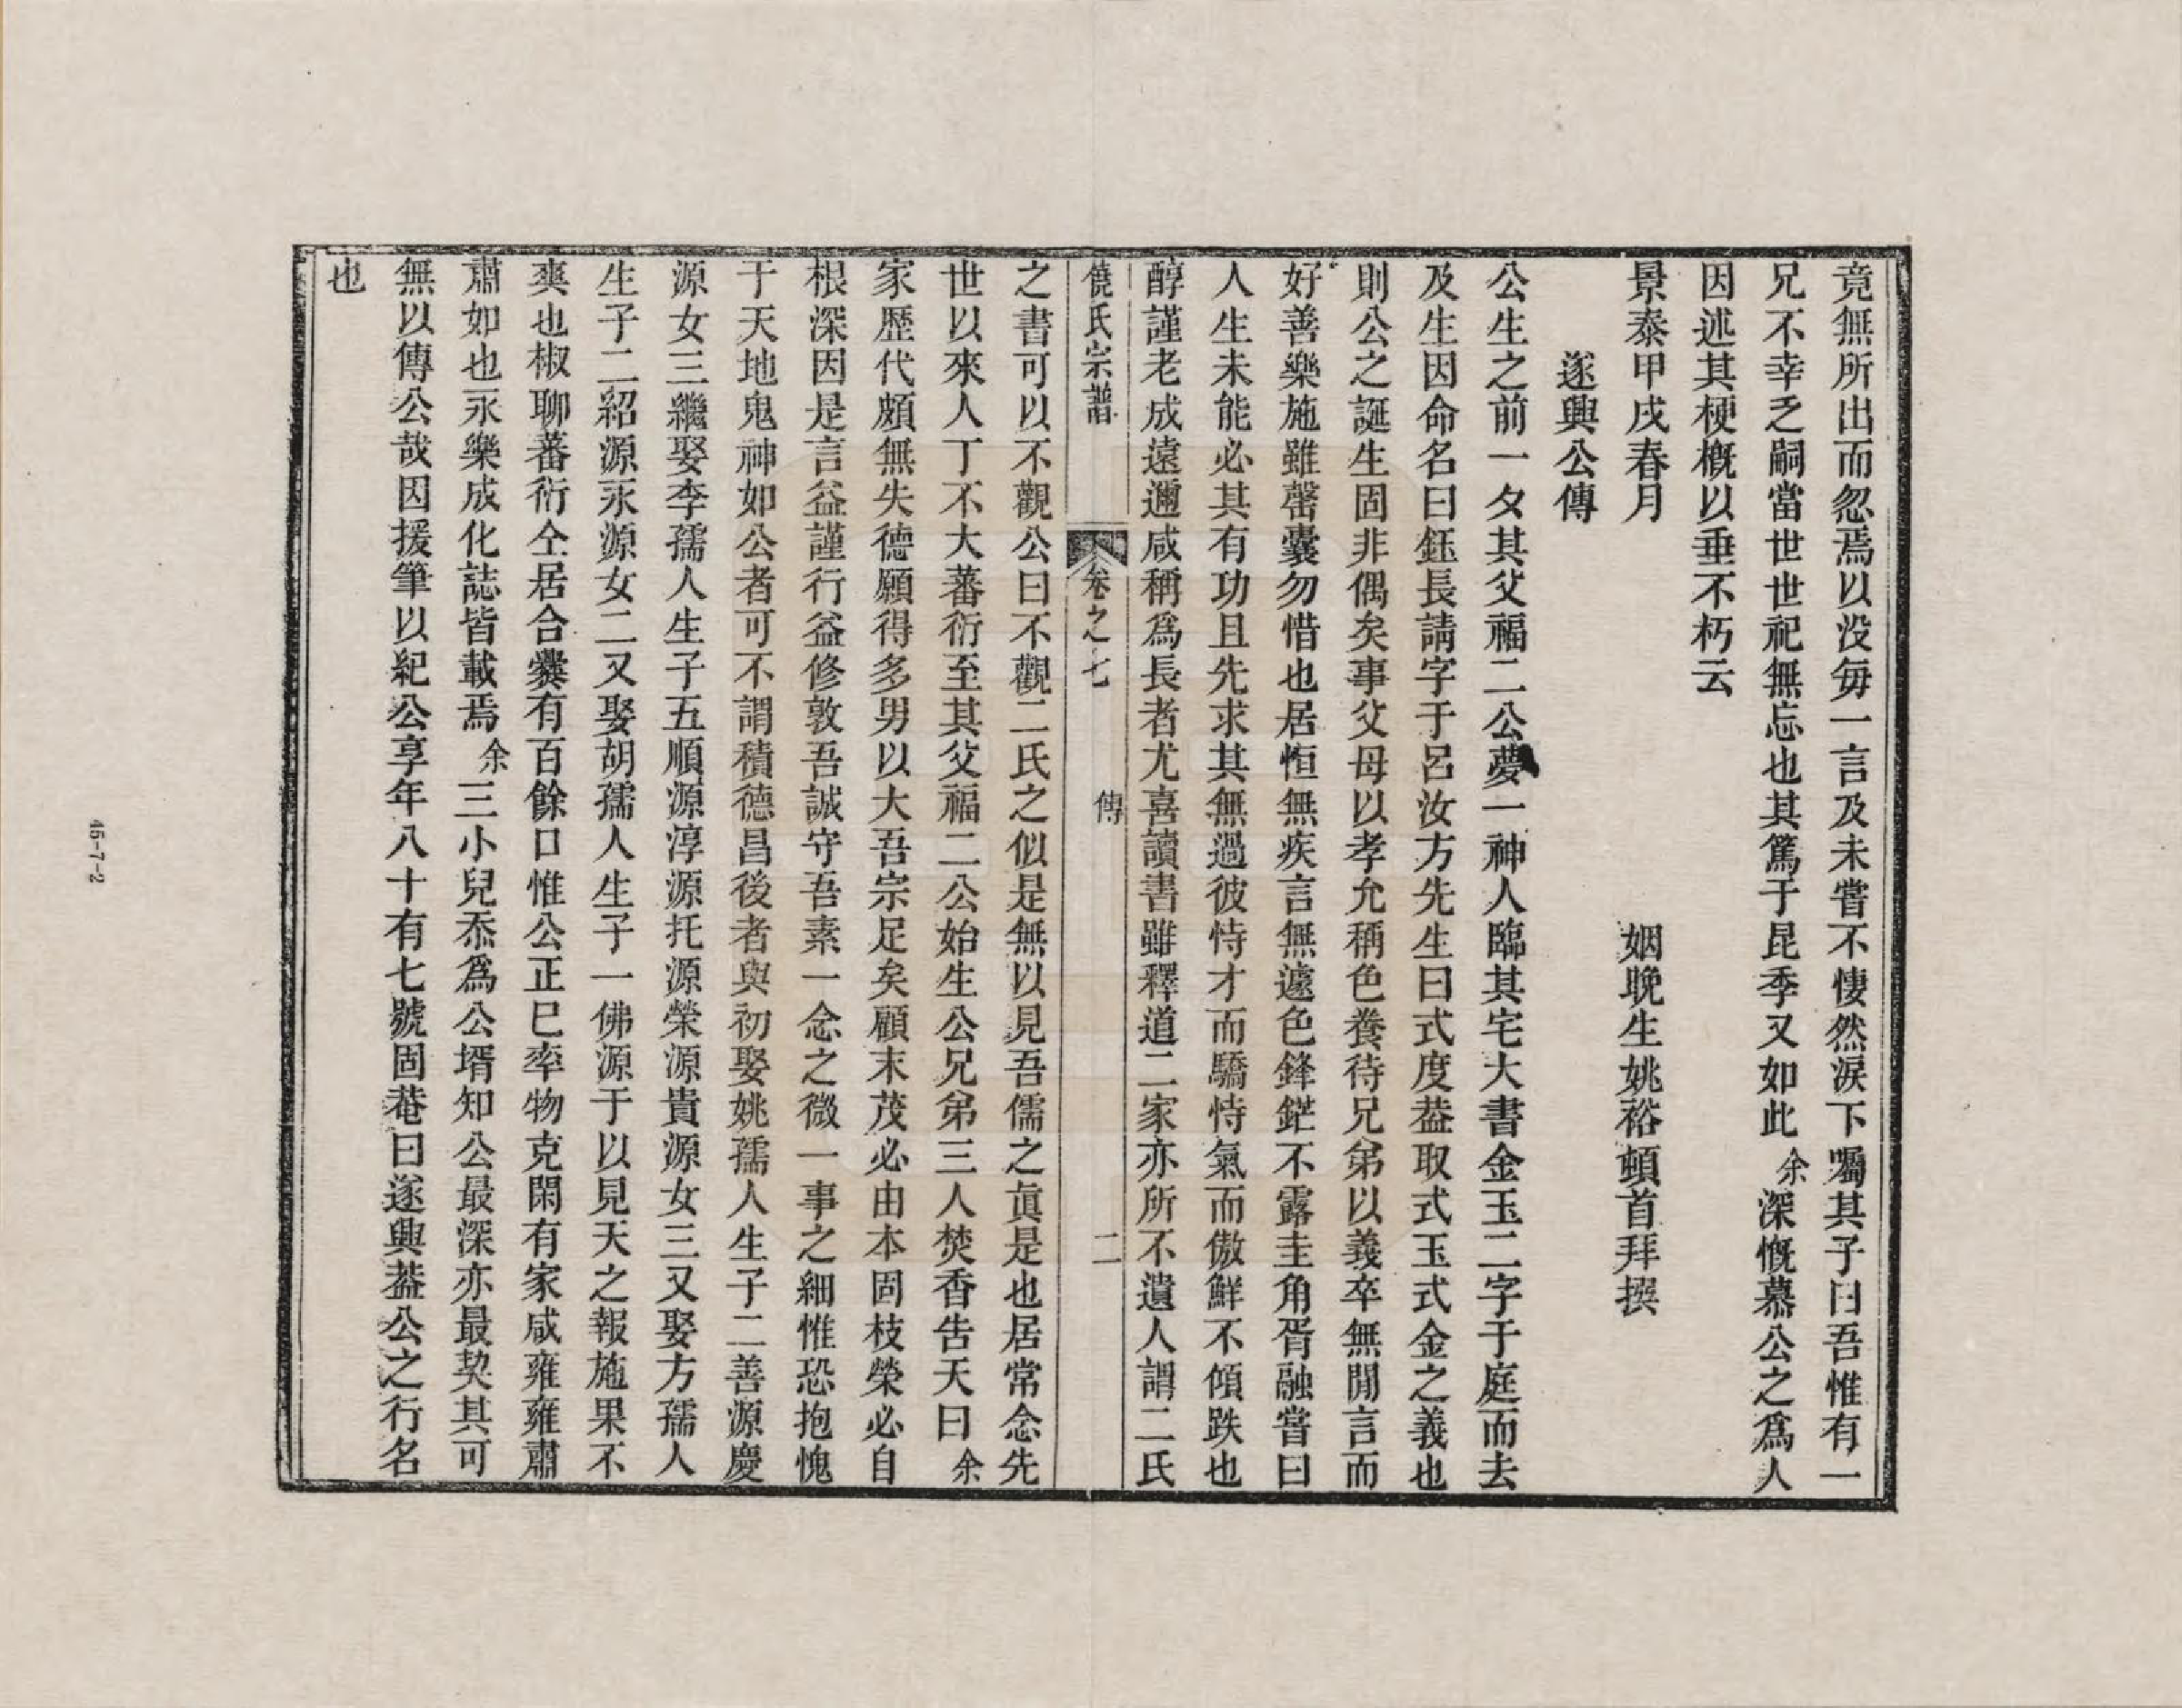 竟無所出而忽焉以没毎一言及未嘗不悽然淚下囑其子曰吾惟有一
兄不幸乏嗣當世世祀無忘也其篤于昆季又如此余深慨慕公之爲人
因述其梗概以垂不朽云
景泰甲戌春月　　姻晚生姚裕頓首拜撰
遂興公傳
公生之前一夕其父福二公夢一神人臨其宅大書金玉二字于庭而去
及生因命名曰鈺長請字于呂汝方先生曰式度葢取式玉式金之義也
則公之誕生固非偶矣事父母以孝允稱色養待兄弟以義卒無閒言而
好善樂施雖罄囊勿惜也居恒無疾言無遽色鋒鋩不露圭角胥融嘗曰
人生未能必其有功且先求其無過彼恃才而驕恃氣而傲鮮不傾跌也
醇謹老成遠邇咸稱爲長者尤喜讀書雖釋道二家亦所不遺人謂二氏
饒氏宗譜　卷之七　傳　二
之書可以不觀公曰不觀二氏之似是無以見吾儒之眞是也居常念先
世以來人丁不大蕃衍至其父福二公始生公兄弟三人焚香告天曰余
家歷代頗無失德願得多男以大吾宗足矣顧末茂必由本固枝榮必自
根深因是言益謹行益修敦吾誠守吾素一念之微一事之細惟恐抱愧
于天地鬼神如公者可不謂積德昌後者與初娶姚孺人生子二善源慶
源女三繼娶李孺人生子五順源淳源托源榮源貴源女三又娶方孺人
生子二紹源永源女二又娶胡孺人生子一佛源于以見天之報施果不
爽也椒聊蕃衍仝居合爨有百餘口惟公正巳率物克閑有家咸雍雍肅
肅如也永樂成化誌皆載焉余三小兒忝爲公壻知公最深亦最契其可
無以傳公哉因援筆以紀公享年八十有七號固菴曰遂興葢公之行名
也
45-7-2